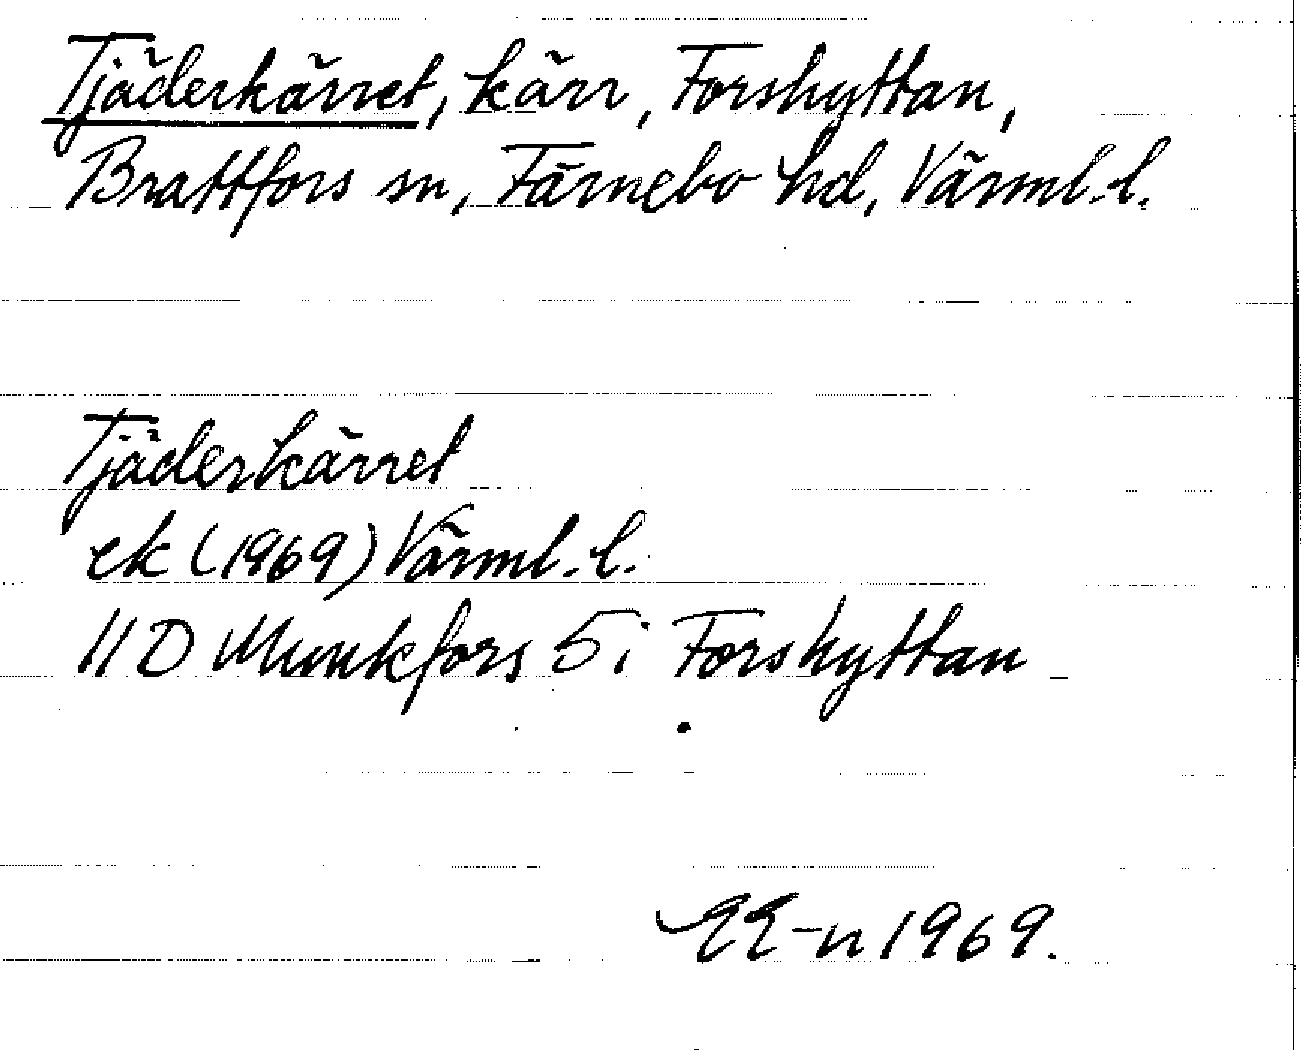 Tjäderkärret, kärr, Forshyttan,
Brattfors sn, Färnebo hd, Värml. l.
Tjäderkärret
ek (1969) Värml. l.
11 D Munkfors 5 i Forshyttan
EE-n 1969.